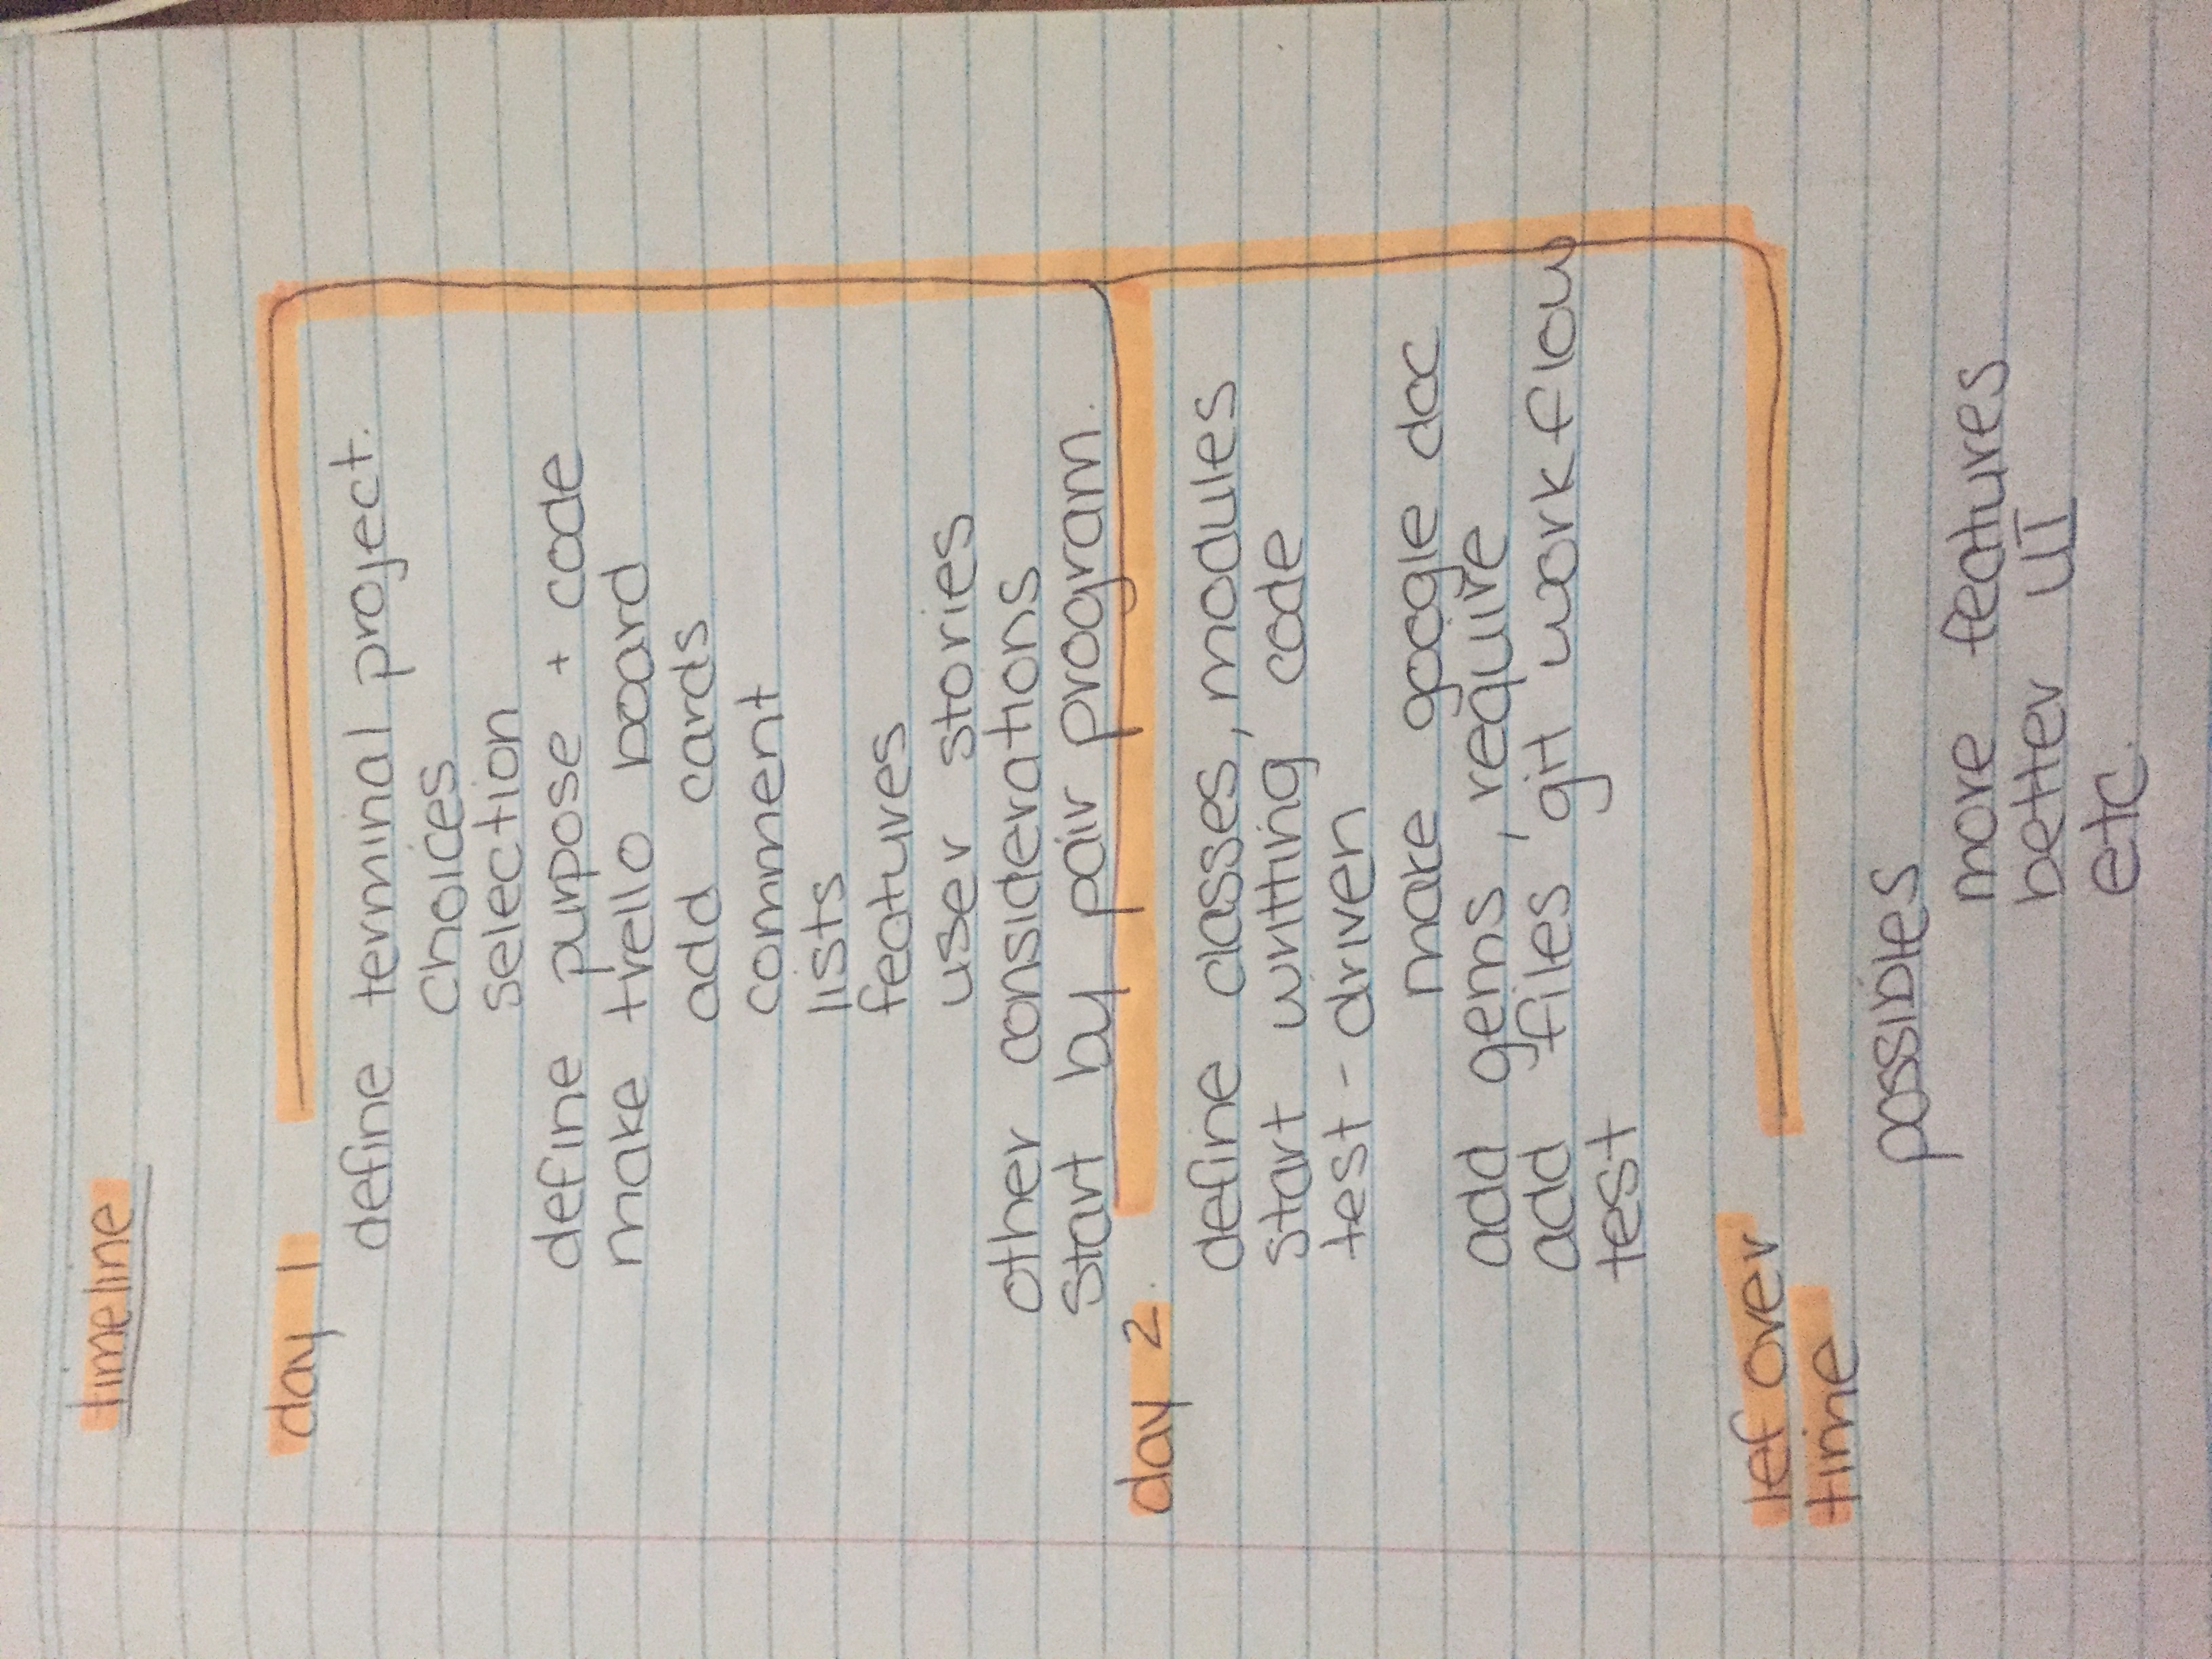 timeline
day 1
define terminal project.
choices
selection
define purpose + code
make trello board
add cards
comment
lists
features
user stories
other considerations
start by pair program.
day 2.
define classes, modules
start writting code
test - driven
make google doc
add gems, require
add files git workflow
test
lef over
time
possibles
more features
better UI
etc.